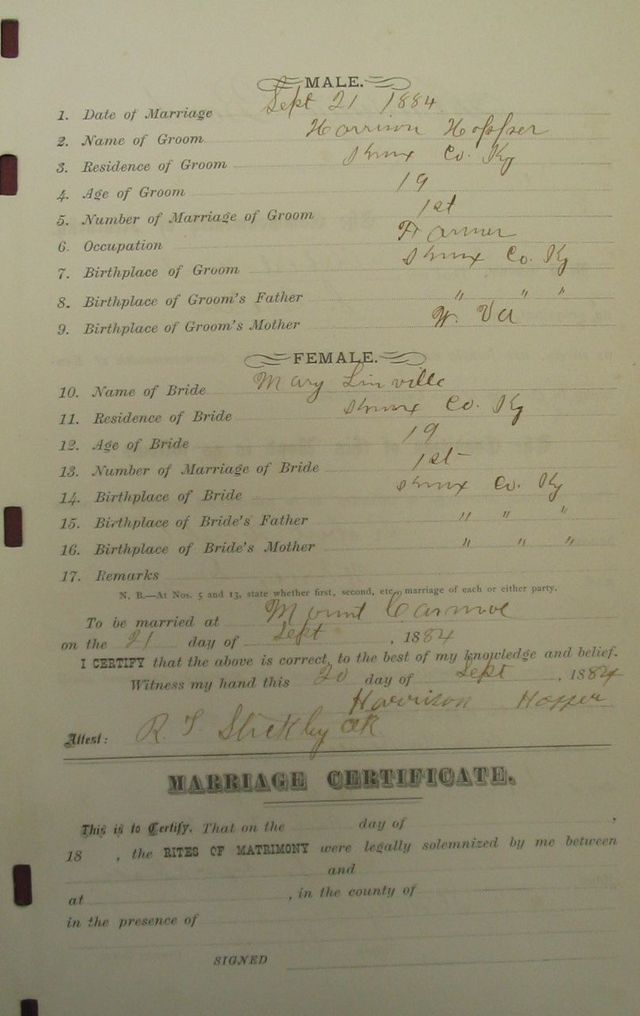 MALE.
1. Date of Marriage Sept 21 1884
2. Name of Groom Harrison Hopper
3. Residence of Groom Knox Co. Ky
4. Age of Groom 19
5. Number of Marriage of Groom 1st
6. Occupation Farmer
7. Birthplace of Groom Knox Co. Ky
8. Birthplace of Groom's Father " " "
9. Birthplace of Groom's Mother W. Va
FEMALE.
10. Name of Bride Mary Linville
11. Residence of Bride Knox Co. Ky
12. Age of Bride 19
13. Number of Marriage of Bride 1st
14. Birthplace of Bride Knox Co. Ky
15. Birthplace of Bride's Father " " "
16. Birthplace of Bride's Mother " " "
17. Remarks
N. B.—At Nos. 5 and 13, state whether first, second, etc., marriage of each or either party.
To be married at Mount
on the 21 day of Sept, 1884
I CERTIFY that the above is correct, to the best of my knowledge and belief.
Witness my hand this 20 day of Sept, 1884
Harrison Hopper
Attest: R. T.
MARRIAGE CERTIFICATE.
This is to Certify, That on the day of ,
18 , the RITES OF MATRIMONY were legally solemnized by me between
and
at , in the county of
in the presence of
SIGNED